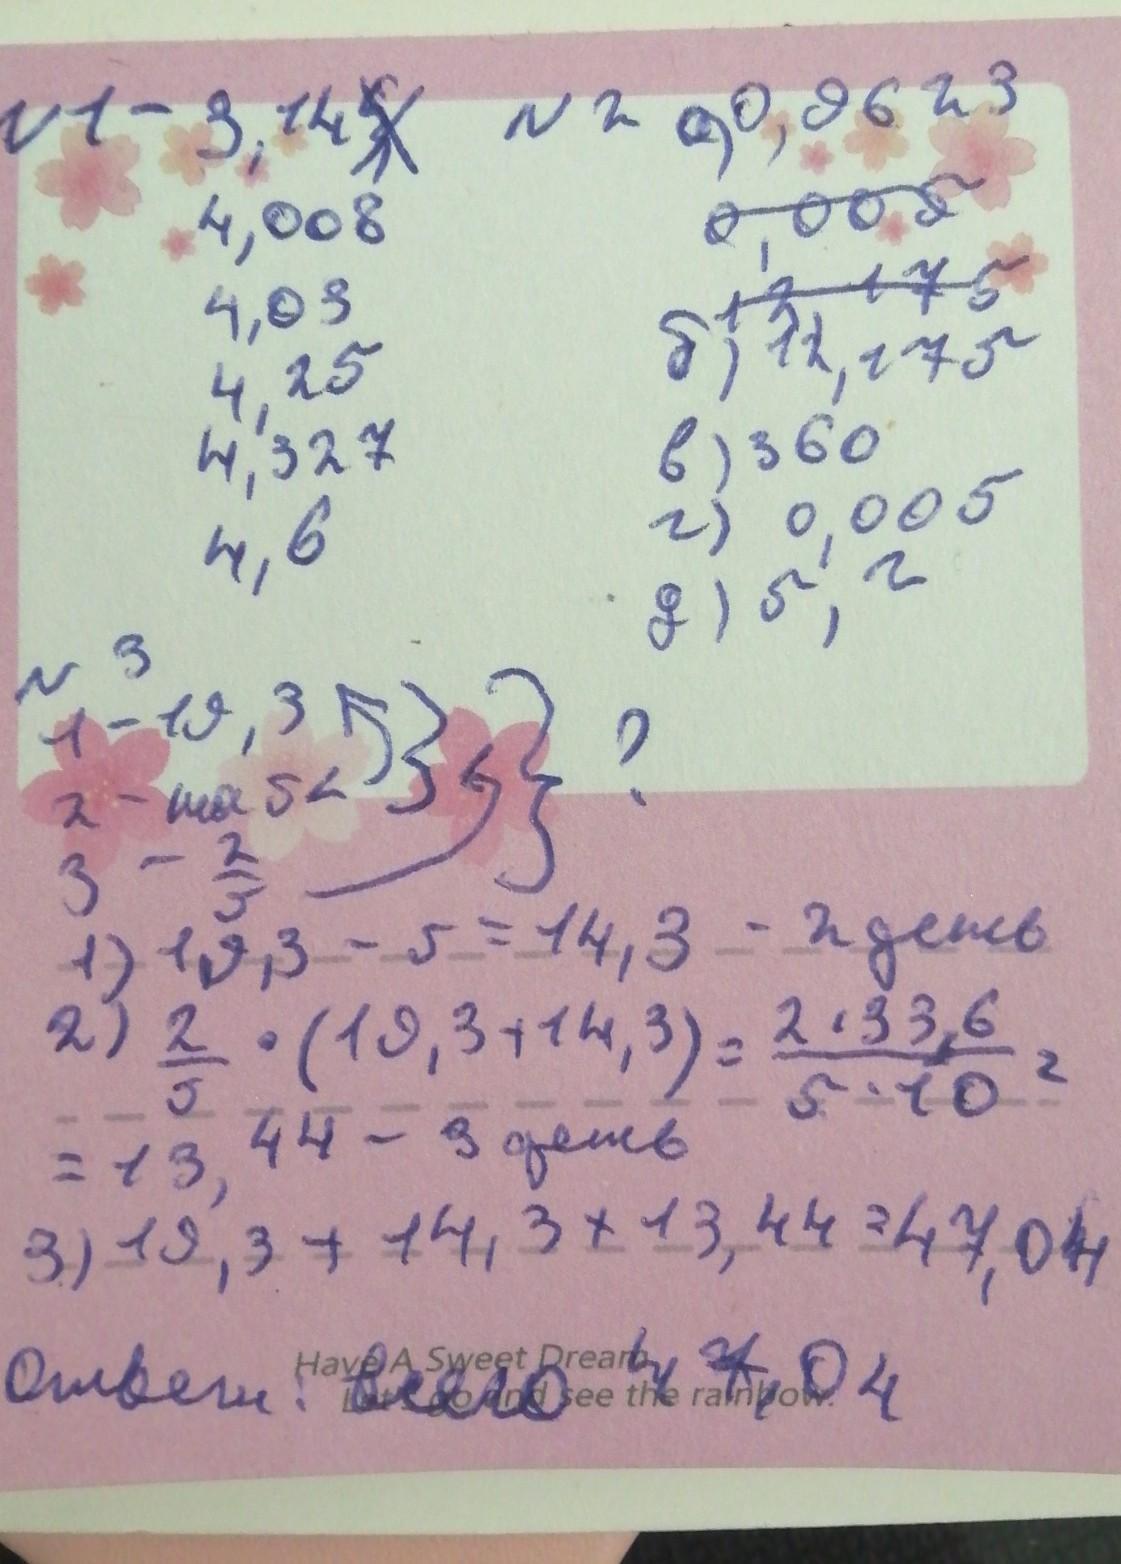 N1 - 3,14
4,008
4,03
4,25
4,327
4,6
N2 а) 0,9623
0,005
12 175
б) 12,175
в) 360
г) 0,005
д) 5,2
N3
1 - 19,3
2 - на 5 <
3 - 2/5
?
1) 19,3 - 5 = 14,3 - 2 день
2) 2/5 · (19,3 + 14,3) = 2·33,6/5·10 =
= 13,44 - 3 день
3) 19,3 + 14,3 + 13,44 = 47,04
Have A Sweet Dream
Ответ: всего 47,04
Let's go and see the rainbow.